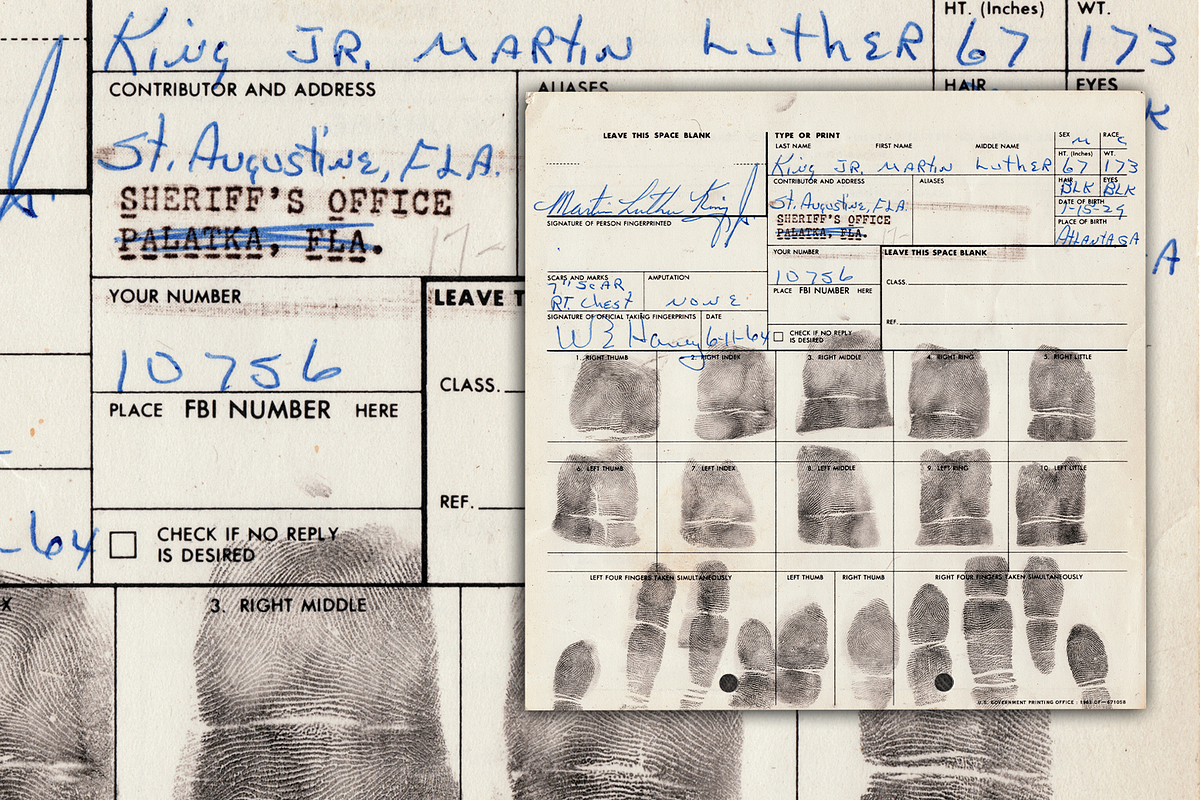 King JR. MARTIN LuthER
HT. (Inches)
67
WT.
173
CONTRIBUTOR AND ADDRESS
ALIASES
HAIR
EYES
K
St. Augustine, FLA.
SHERIFF'S OFFICE
PALATKA, FLA.
17-
A
YOUR NUMBER
10756
LEAVE T
PLACE FBI NUMBER HERE
CLASS.
REF.
-64
CHECK IF NO REPLY
IS DESIRED
X
3. RIGHT MIDDLE
LEAVE THIS SPACE BLANK
TYPE OR PRINT
LAST NAME FIRST NAME MIDDLE NAME
King JR. MARTIN LuthER
SEX
M
RACE
C
HT. (Inches)
67
WT.
173
CONTRIBUTOR AND ADDRESS
ALIASES
HAIR
BLK
EYES
BLK
St. Augustine, FLA.
SHERIFF'S OFFICE
PALATKA, FLA.
DATE OF BIRTH
1-15-29
PLACE OF BIRTH
AtlANTA GA
Martin Luther King Jr.
SIGNATURE OF PERSON FINGERPRINTED
YOUR NUMBER
10756
LEAVE THIS SPACE BLANK
SCARS AND MARKS
7" ScAR
RT. Chest
AMPUTATION
NONE
PLACE FBI NUMBER HERE
CLASS.
REF.
SIGNATURE OF OFFICIAL TAKING FINGERPRINTS
DATE
6-11-64
CHECK IF NO REPLY
IS DESIRED
1. RIGHT THUMB
2. RIGHT INDEX
3. RIGHT MIDDLE
4. RIGHT RING
5. RIGHT LITTLE
6. LEFT THUMB
7. LEFT INDEX
8. LEFT MIDDLE
9. LEFT RING
10. LEFT LITTLE
LEFT FOUR FINGERS TAKEN SIMULTANEOUSLY
LEFT THUMB
RIGHT THUMB
RIGHT FOUR FINGERS TAKEN SIMULTANEOUSLY